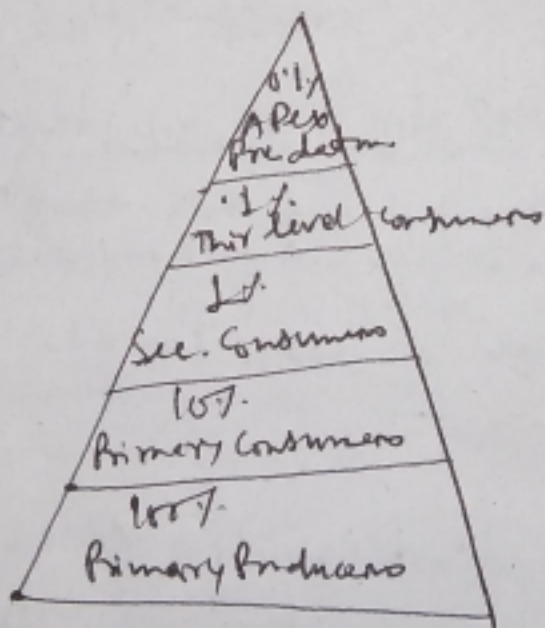 0.1%
Apex
Predators
.1%
Thir level consumers
1%
Sec. Consumers
10%
Primary Consumers
100%
Primary Producers